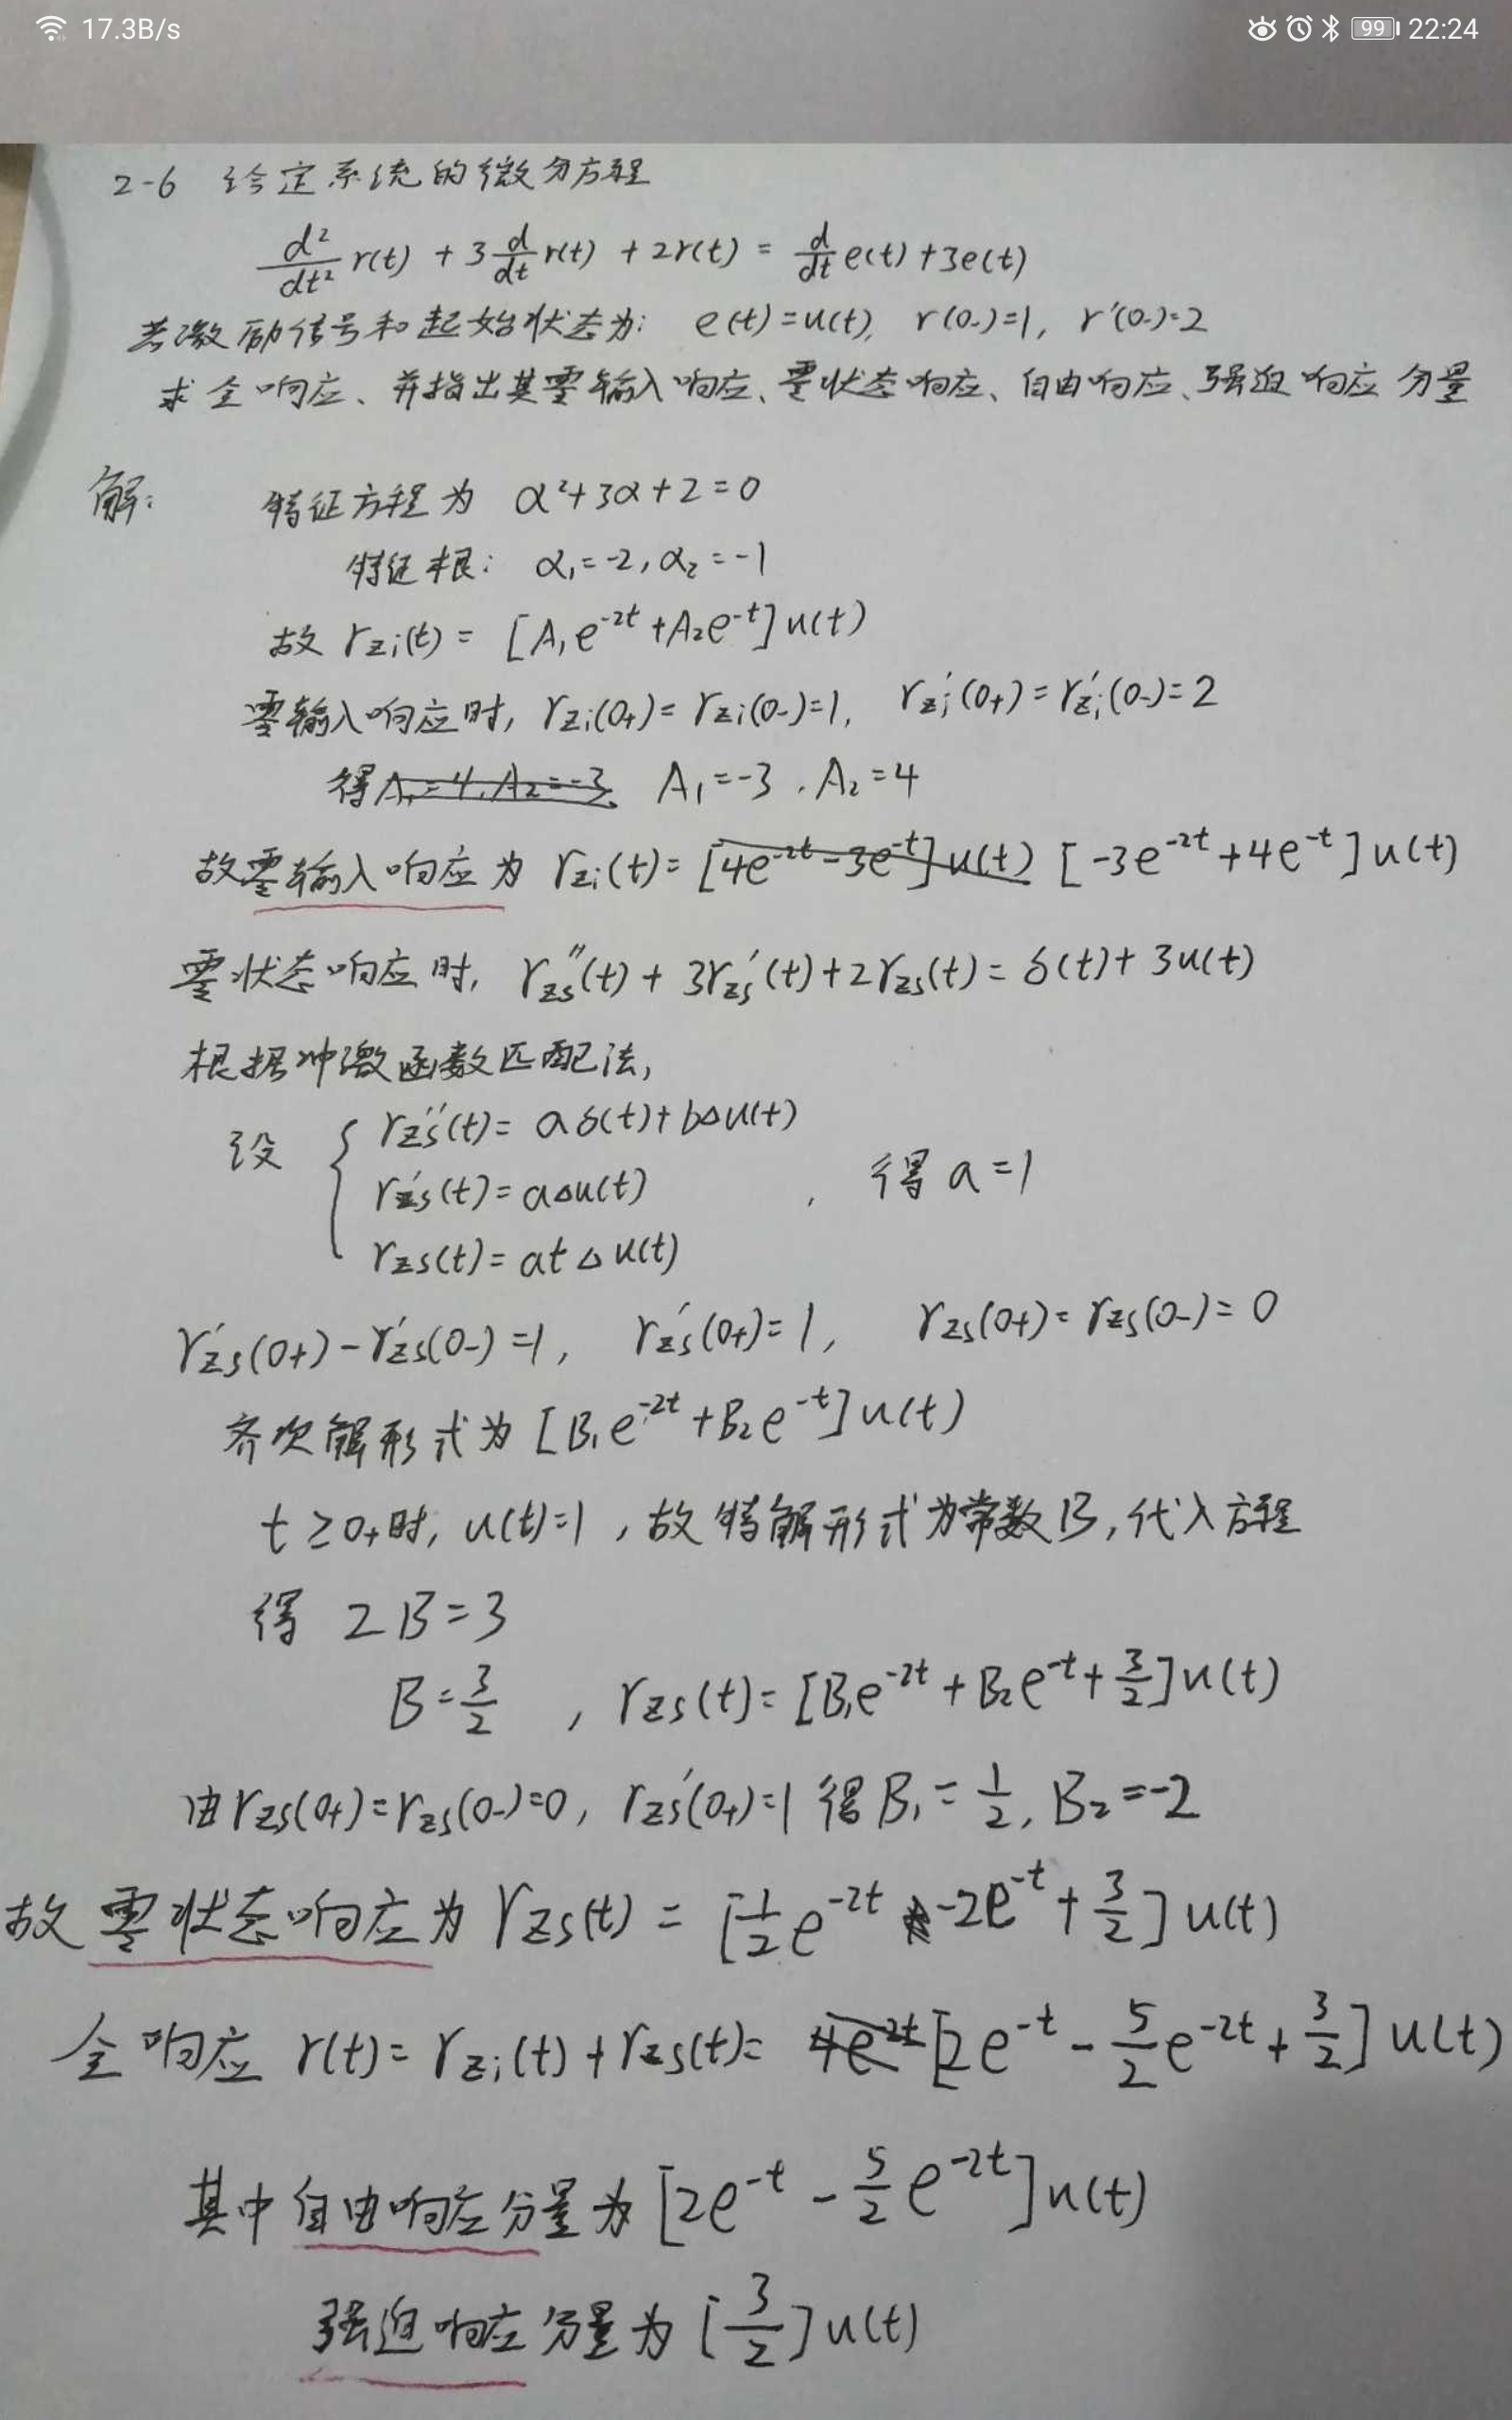 17.3B/s 99 22:24
2-6 给定系统的微分方程
d²/dt² r(t) + 3 d/dt r(t) + 2r(t) = d/dt e(t) + 3e(t)
若激励信号和起始状态为: e(t)=u(t), r(0-)=1, r'(0-)=2
求全响应、并指出其零输入响应、零状态响应、自由响应、强迫响应分量
解: 特征方程为 α²+3α+2=0
特征根: α₁=-2, α₂=-1
故 rzi(t) = [A₁e^-2t +A₂e^-t]u(t)
零输入响应时, rzi(0+)=rzi(0-)=1, rzi'(0+)=rzi'(0-)=2
得 A₁=4, A₂=-3 A₁=-3, A₂=4
故零输入响应为 rzi(t)= [4e^-2t -3e^-t]u(t) [-3e^-2t +4e^-t]u(t)
零状态响应时, rzs''(t) + 3rzs'(t) + 2rzs(t) = δ(t) + 3u(t)
根据冲激函数匹配法,
设 { rzs''(t) = aδ(t)+bΔu(t)
rzs'(t) = aΔu(t) , 得 a=1
rzs(t) = atΔu(t)
rzs'(0+) - rzs'(0-) =1, rzs'(0+)=1, rzs(0+)= rzs(0-)=0
齐次解形式为 [B₁e^-2t +B₂e^-t]u(t)
t≥0+时, u(t)=1, 故特解形式为常数B, 代入方程
得 2B=3
B=3/2 , rzs(t)= [B₁e^-2t + B₂e^-t + 3/2]u(t)
由rzs(0+)=rzs(0-)=0, rzs'(0+)=1 得 B₁=1/2, B₂=-2
故零状态响应为 rzs(t) = [1/2 e^-2t -2e^-t + 3/2]u(t)
全响应 r(t)= rzi(t) + rzs(t)= 4e^-2t [2e^-t - 5/2 e^-2t + 3/2]u(t)
其中自由响应分量为 [2e^-t - 5/2 e^-2t]u(t)
强迫响应分量为 [3/2]u(t)